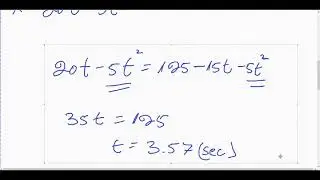 20t-5t²=125-15t-5t²
35t=125
t=3.57(sec)